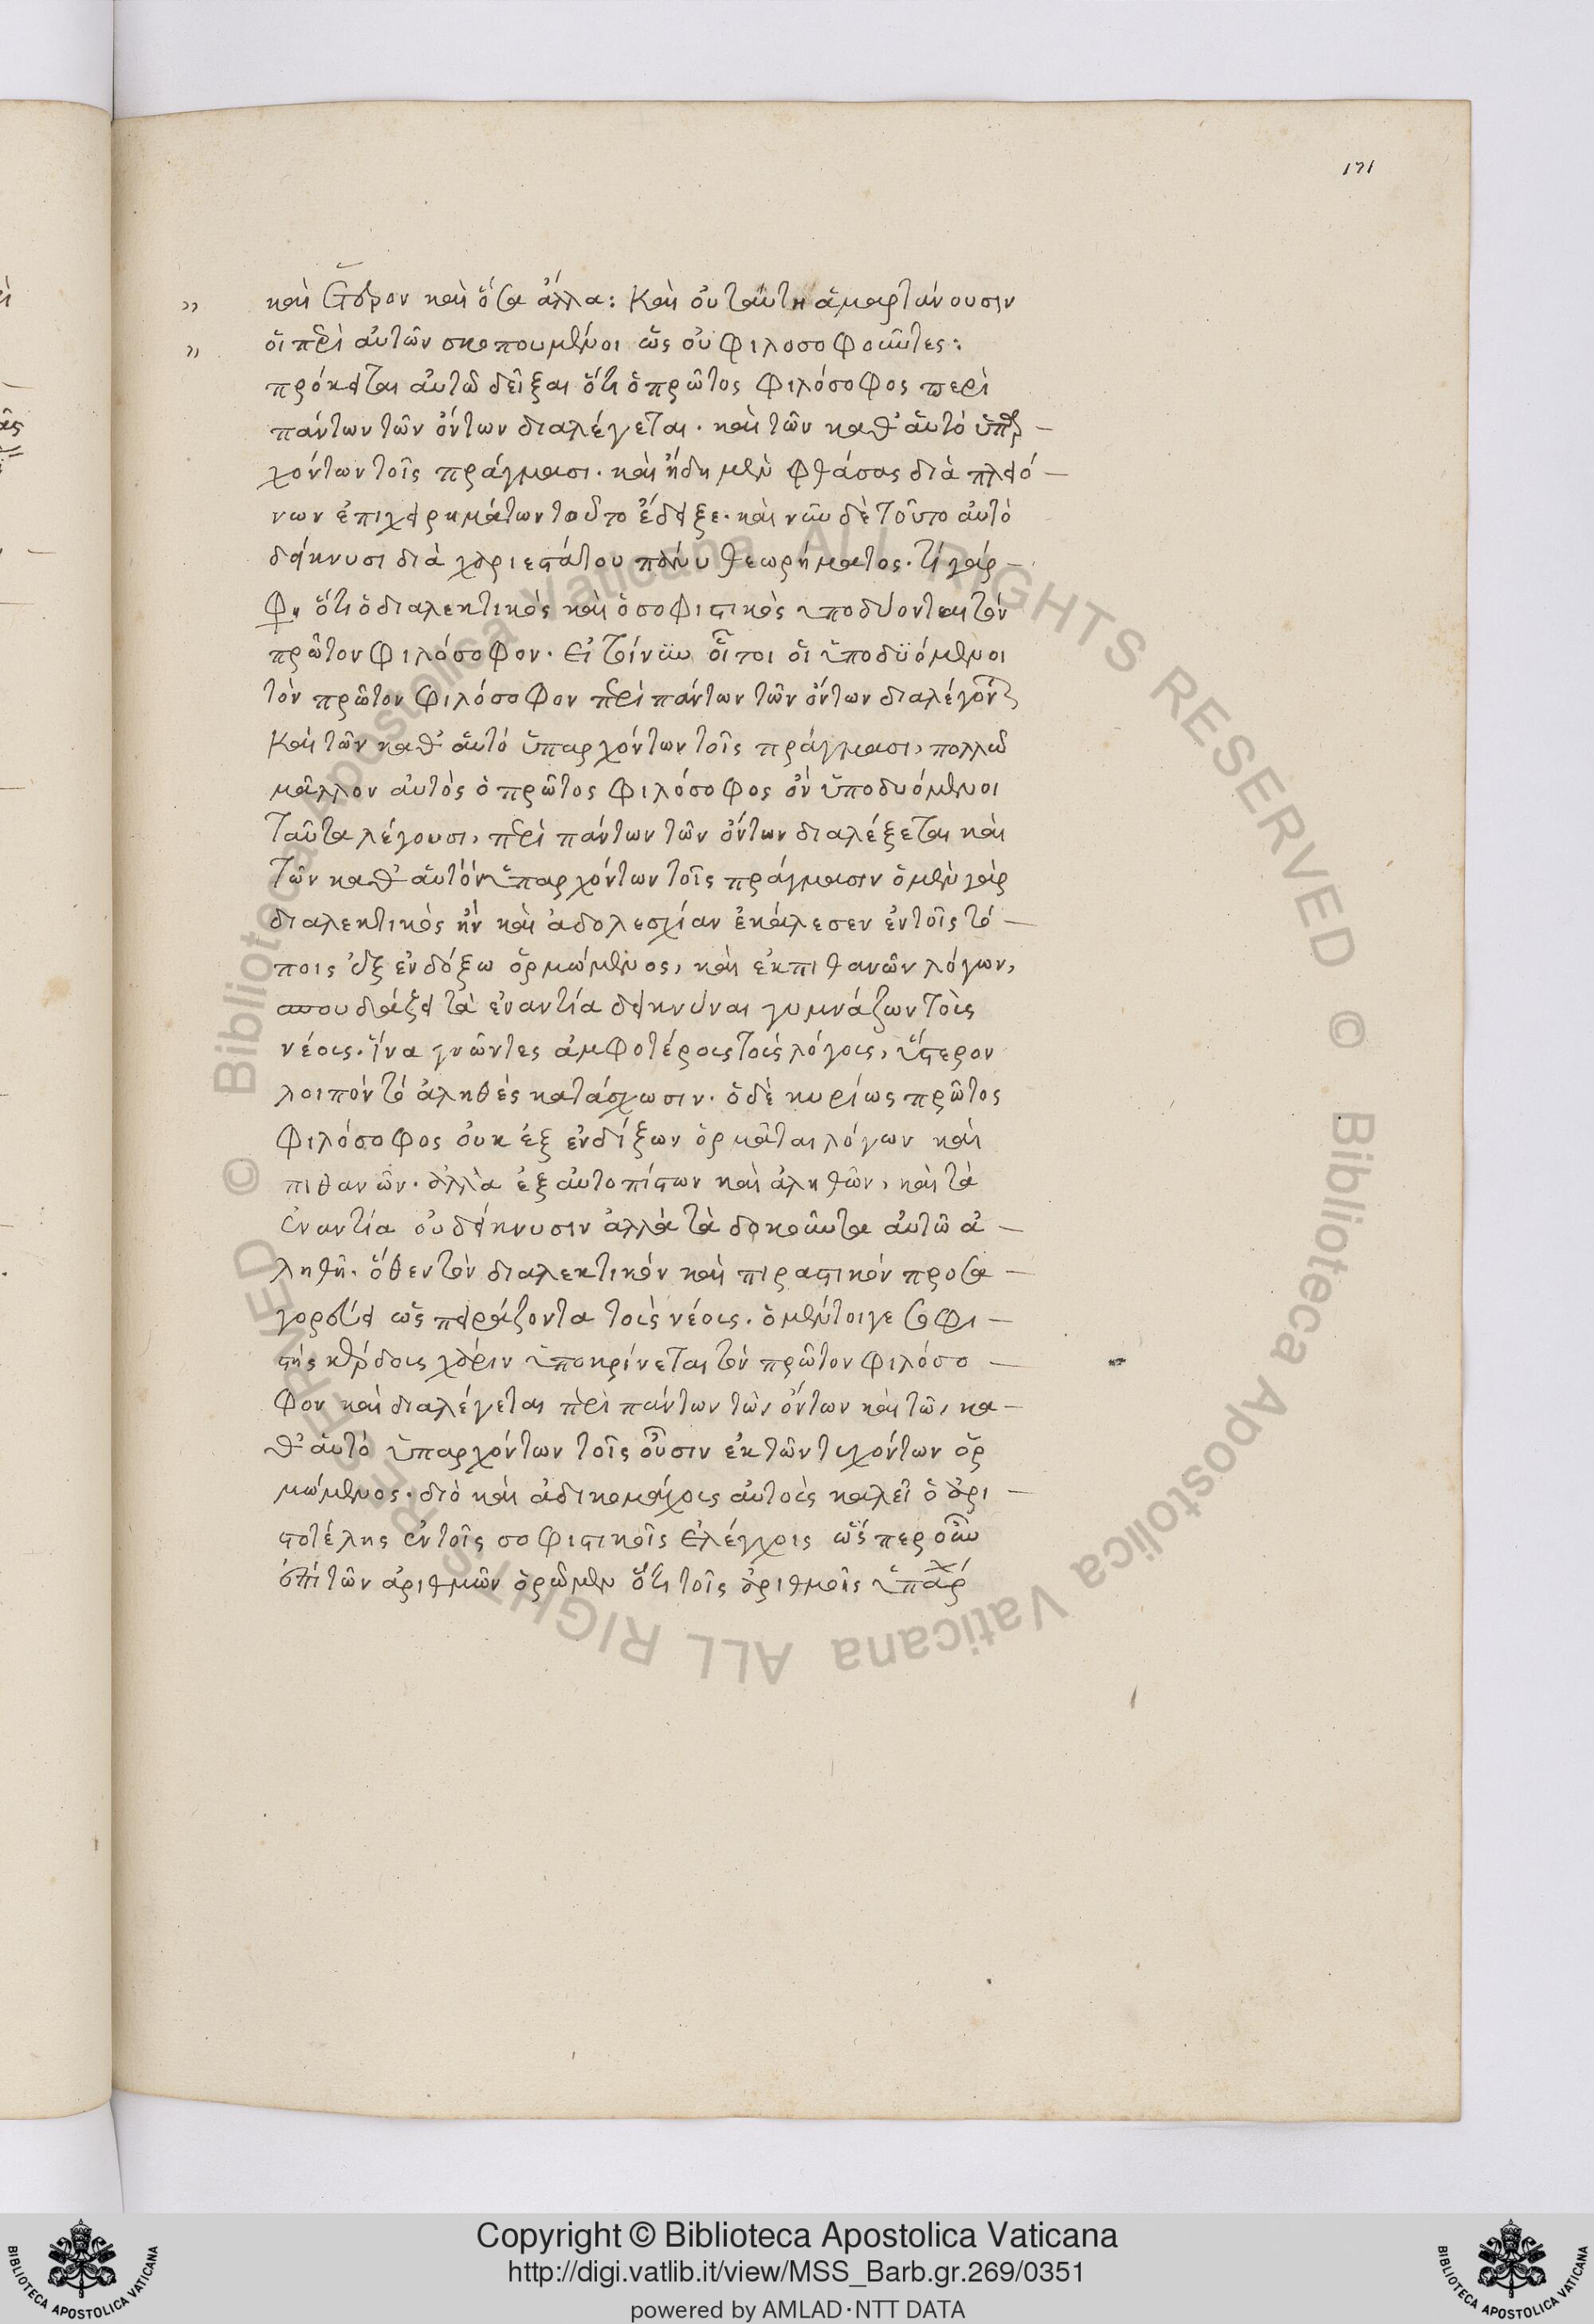 171
καὶ ἕτερον καὶ ὅσα ἄλλα: Καὶ οὐ ταύτη ἁμαρτάνουσιν
οἱ περὶ αὐτῶν σκοπουμένοι ὡς οὐ φιλοσοφοῦντες:
πρόκειται αὐτῶ δεῖξαι ὅτι ὁ πρῶτος φιλόσοφος περὶ
πάντων τῶν ὄντων διαλέγεται. καὶ τῶν καθ' αὑτό ὑπαρ
χόντων τοῖς πράγμασι. καὶ ἤδη μὲν φθάσας διὰ πλειό
νων ἐπιχειρημάτων τοῦτο ἔδειξε. καὶ νῦν δὲ τοῦτο αὐτὸ
δείκνυσι διὰ χαριεστάτου πάνυ θεωρήματος. τί γάρ
φησιν ὅτι ὁ διαλεκτικὸς καὶ ὁ σοφιστικὸς ὑποδύονται τὸν
πρῶτον φιλόσοφον. εἰ τοίνυν οὗτοι οἱ ὑποδϋόμενοι
τὸν πρῶτον φιλόσοφον περὶ πάντων τῶν ὄντων διαλέγονται
Καὶ τῶν καθ' αὑτό ὑπαρχόντων τοῖς πράγμασι, πολλῶ
μᾶλλον αὐτὸς ὁ πρῶτος φιλόσοφος ὃν ὑποδυόμενοι
ταῦτα λέγουσι, περὶ πάντων τῶν ὄντων διαλέξεται καὶ
τῶν καθ' αὑτὸν ὑπαρχόντων τοῖς πράγμασιν ὁ μὲν γὰρ
διαλεκτικὸς ἣν καὶ ἀδολεσχίαν ἐκάλεσεν ἐν τοῖς τό
ποις ἐξ ἐνδόξω ὁρμώμενος, καὶ ἐκ πιθανῶν λόγων,
σπουδάζει τὰ ἐναντία δεικνύναι γυμνάζων τοὺς
νέους. ἵνα γνῶντες ἀμφοτέρους τοὺς λόγους, ὕστερον
λοιπόν τὸ ἀληθὲς κατάσχωσιν. ὁ δὲ κυρίως πρῶτος
φιλόσοφος οὐκ ἐξ ἐνδόξων ὁρμᾶται λόγων καὶ
πιθανῶν. ἀλλὰ ἐξ αὐτοπίστων καὶ ἀληθῶν, καὶ τὰ
ἐναντία οὐ δείκνυσιν ἀλλὰ τὰ δοκοῦντα αὐτῶ ἀ
ληθῆ. ὅθεν τὸν διαλεκτικόν καὶ πιραστικόν προσα
γορεύει ὡς πειράζοντα τοὺς νέους. ὁ μέντοιγε σοφι
στὴς κέρδους χάριν ὑποκρίνεται τὸν πρῶτον φιλόσο
φον καὶ διαλέγεται περὶ πάντων τῶν ὄντων καὶ τῶν κα
θ' αὑτό ὑπαρχόντων τοῖς οὖσιν ἐκ τῶν τυχόντων ὁρ
μώμενος. διὸ καὶ ἀδικομάχους αὐτοὺς καλεῖ ὁ ἀρι
στοτέλης ἐν τοῖς σοφιστικοῖς ἐλέγχοις ὥσπερ οὖν
ἐπὶ τῶν ἀριθμῶν ὁρῶμεν ὅτι τοῖς ἀριθμοῖς ὑπάρχ
Copyright © Biblioteca Apostolica Vaticana
http://digi.vatlib.it/view/MSS_Barb.gr.269/0351
powered by AMLAD·NTT DATA
BIBLIOTECA APOSTOLICA VATICANA
BIBLIOTECA APOSTOLICA VATICANA
© Biblioteca Apostolica Vaticana ALL RIGHTS RESERVED © Biblioteca Apostolica Vaticana ALL RIGHTS RESERVED